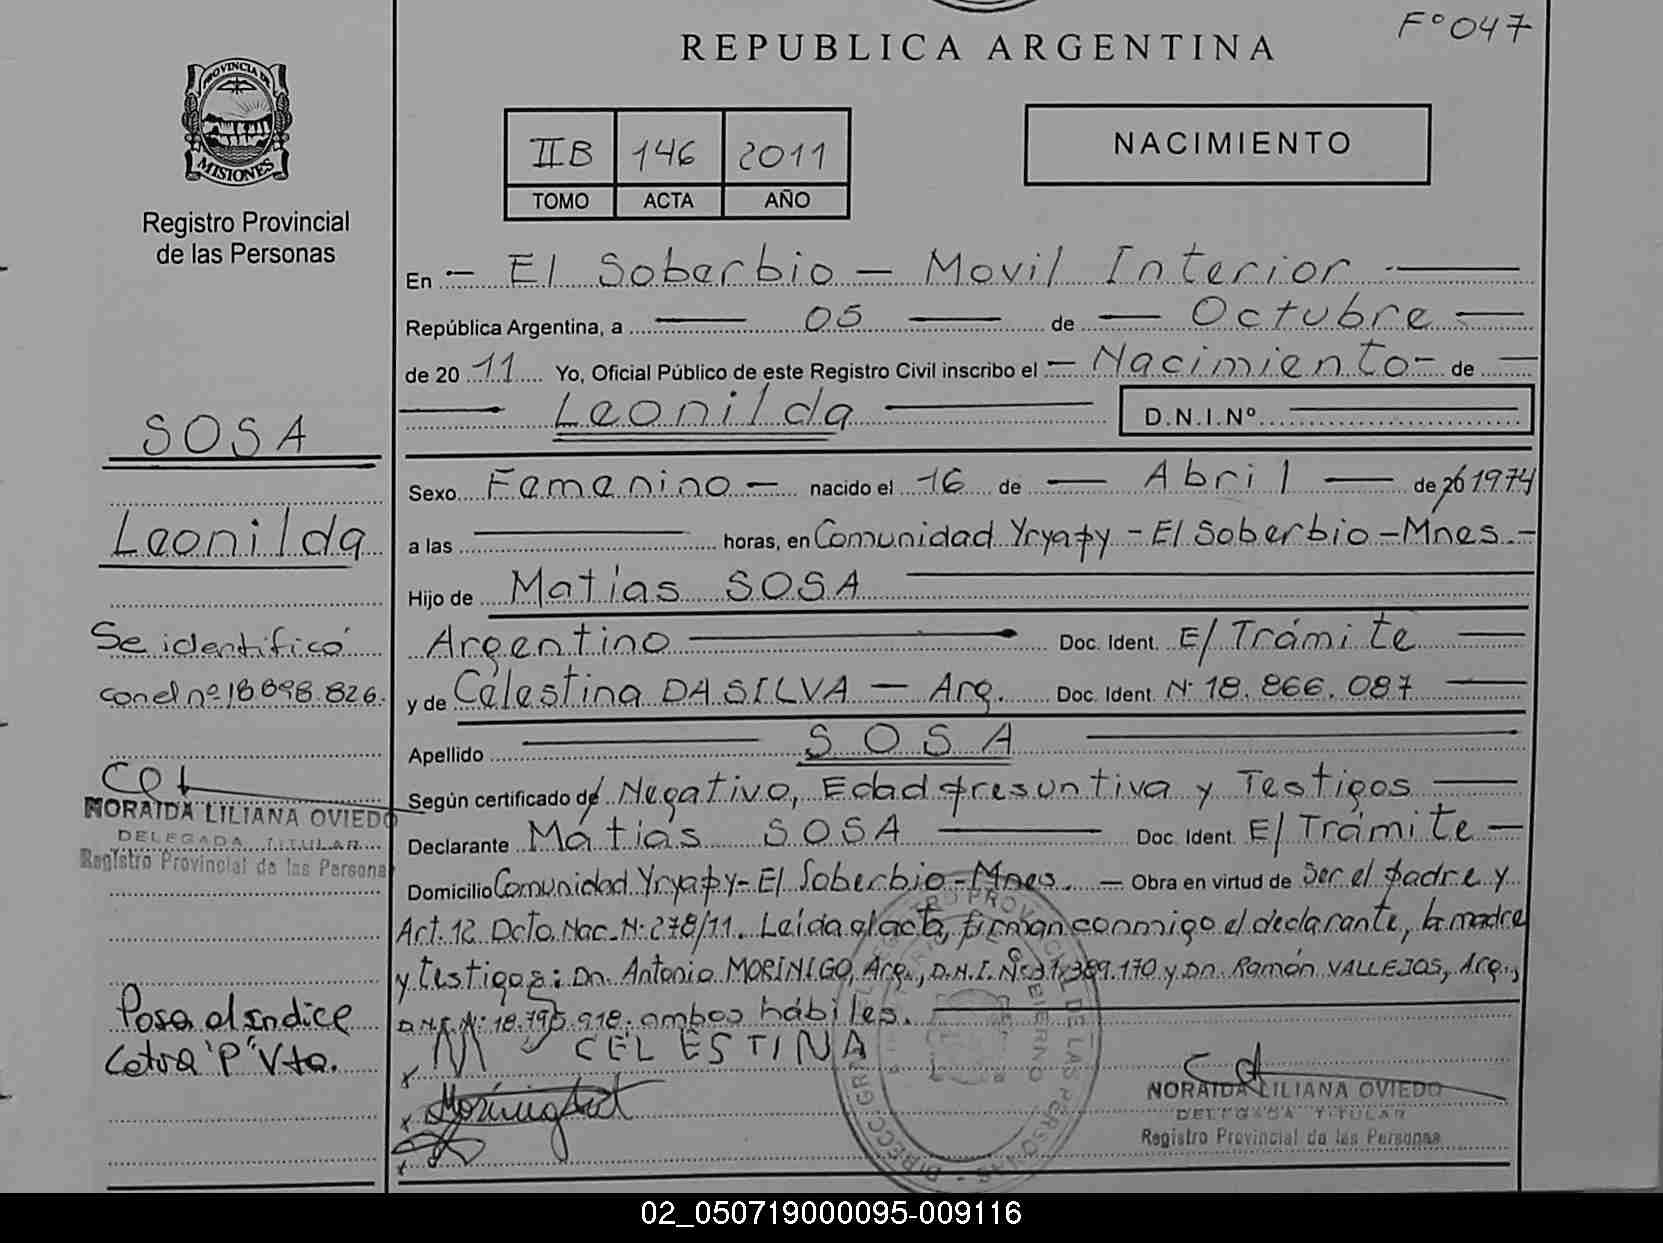 F° 047
REPUBLICA ARGENTINA
PROVINCIA DE
MISIONES
Registro Provincial
de las Personas
IIB 146 2011
TOMO ACTA AÑO
NACIMIENTO
En - El Soberbio - Movil Interior
República Argentina, a 05 de Octubre
de 2011 Yo, Oficial Público de este Registro Civil inscribo el - Nacimiento - de
Leonilda D.N.I.Nº
Sexo Femenino - nacido el 16 de Abril de 1974
a las horas, en Comunidad Yryapy - El Soberbio - Mnes. -
Hijo de Matias SOSA
Argentino Doc. Ident. E/ Trámite
y de Celestina DA SILVA - Arg. Doc. Ident. N· 18.866.087
Apellido SOSA
Según certificado de/ Negativo, Edad presuntiva y Testigos
Declarante Matias SOSA Doc. Ident. E/ Trámite -
Domicilio Comunidad Yryapy - El Soberbio - Mnes. - Obra en virtud de Ser el padre y
Art. 12 Dcto. Nac. N· 278/11. Leída el acta, firman conmigo el declarante, la madre
y testigos: Dn. Antonio MORINIGO, Arg., D.N.I. Nº 31.389.170 y Dn. Ramón VALLEJOS, Arg.,
D.N.I. N· 18.795.918. ambos hábiles.
M CELESTINA
NORAIDA LILIANA OVIEDO
DELEGADA TITULAR
Registro Provincial de las Personas
SOSA
Leonilda
Se identificó
con el nº 18.898.826.
NORAIDA LILIANA OVIEDO
DELEGADA TITULAR
Registro Provincial de las Persona
Pasa al Indice
Letra "P" Vta.
02_050719000095-009116